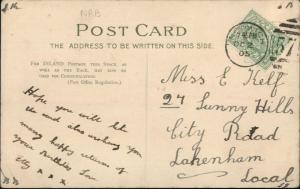 NRB
POST CARD
THE ADDRESS TO BE WRITTEN ON THIS SIDE.
FOR INLAND POSTAGE THIS SPACE, AS
WELL AS THE BACK, MAY NOW BE
USED FOR COMMUNICATION.
(Post Office Regulation).
OC 2
05
Miss E Kelf
24 Sunny Hills
City Road
Lakenham
Local
Hope you will like
this and also wishing you
many happy returns of
your Birthday Love
x x x